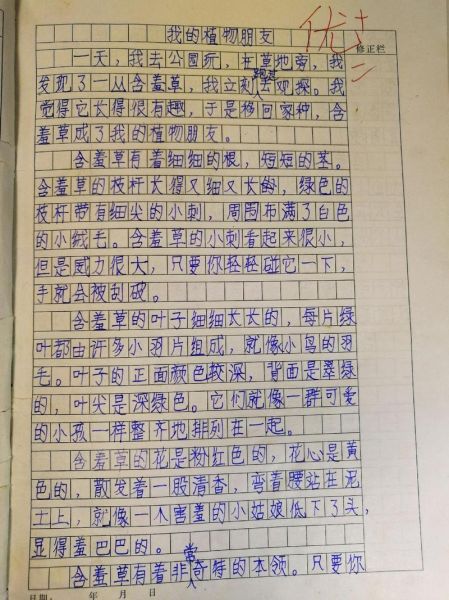 我的植物朋友
优+
修正栏
一天，我去公园玩，在草地旁，我
发现了一丛含羞草，我立刻跑过去观探。我
觉得它长得很有趣，于是移回家种，含
羞草成了我的植物朋友。
含羞草有着细细的根，短短的茎。
含羞草的枝杆长得又细又长，绿色的
枝杆带有细尖的小刺，周围布满了白色
的小绒毛。含羞草的小刺看起来很小，
但是威力很大，只要你轻轻碰它一下，
手就会被刮破。
含羞草的叶子细细长长的，每片绿
叶都由许多小羽片组成，就像小鸟的羽
毛。叶子的正面颜色较深，背面是翠绿
的，叶尖是深绿色。它们就像一群可爱
的小孩一样整齐地排列在一起。
含羞草的花是粉红色的，花心是黄
色的，散发着一股清香，弯着腰站在泥
土上，就像一个害羞的小姑娘低下了头，
显得羞巴巴的。
含羞草有着非常奇特的本领。只要你
日期： 年 月 日